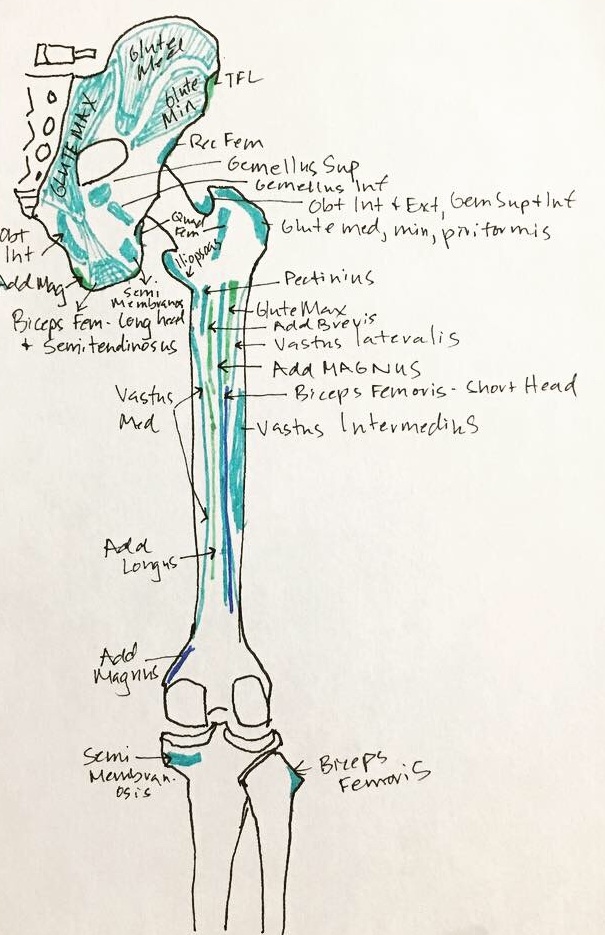 Glute
Med
TFL
Glute
Min
GLUTE MAX
Rec Fem
Gemellus Sup
Gemellus Inf
Obt Int + Ext, Gem Sup + Inf
Quad
Fem
Glute med, min, piriformis
Iliopsoas
Obt
Int
Add Mag
Semi
Membranos
Biceps Fem - Long head
+ Semitendinosus
Pectinius
Glute Max
Add Brevis
Vastus lateralis
Add MAGNUS
Biceps Femoris - Short Head
Vastus
Med
Vastus Intermedius
Add
Longus
Add
Magnus
Semi
Membran.
osis
Biceps
Femoris